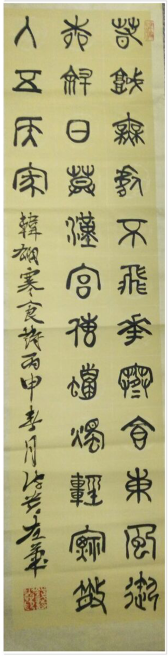 春城無處不飛華寒食東風御
柳斜日暮漢宮傳蠟燭輕煙散
入五侯家
韓翃寒食詩丙申春月